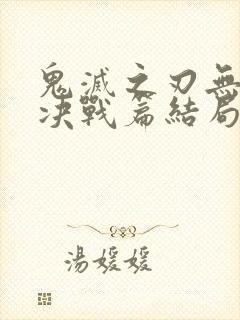 鬼滅之刃無
决戰篇結局
湯媛媛